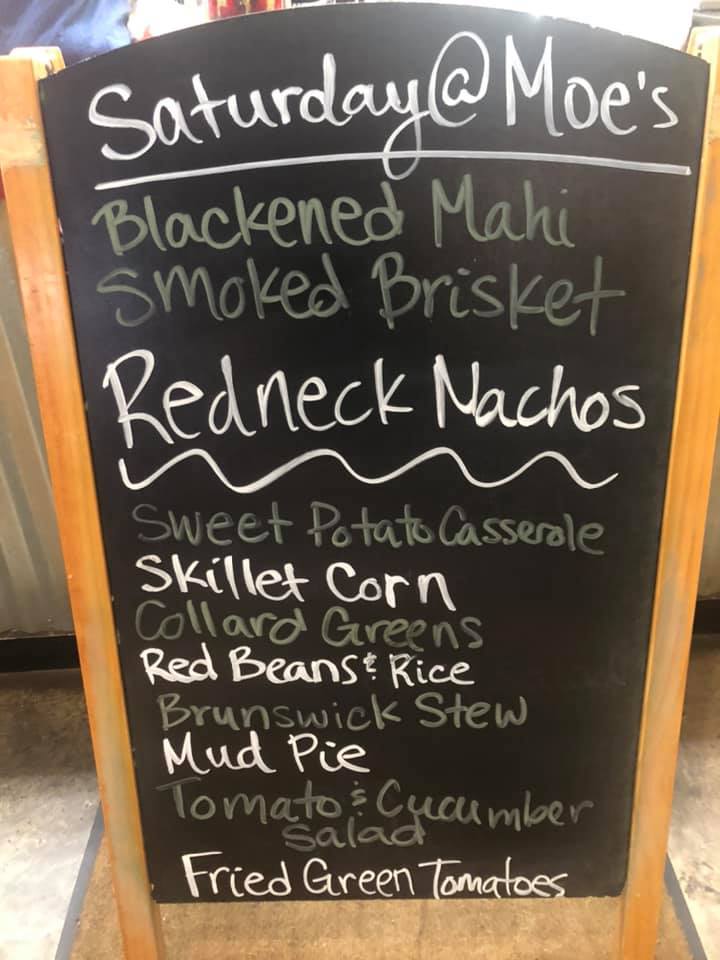 Saturday@Moe's
Blackened Mahi
Smoked Brisket
Redneck Nachos
Sweet Potato Casserole
Skillet Corn
Collard Greens
Red Beans & Rice
Brunswick Stew
Mud Pie
Tomato & Cucumber
Salad
Fried Green Tomatoes